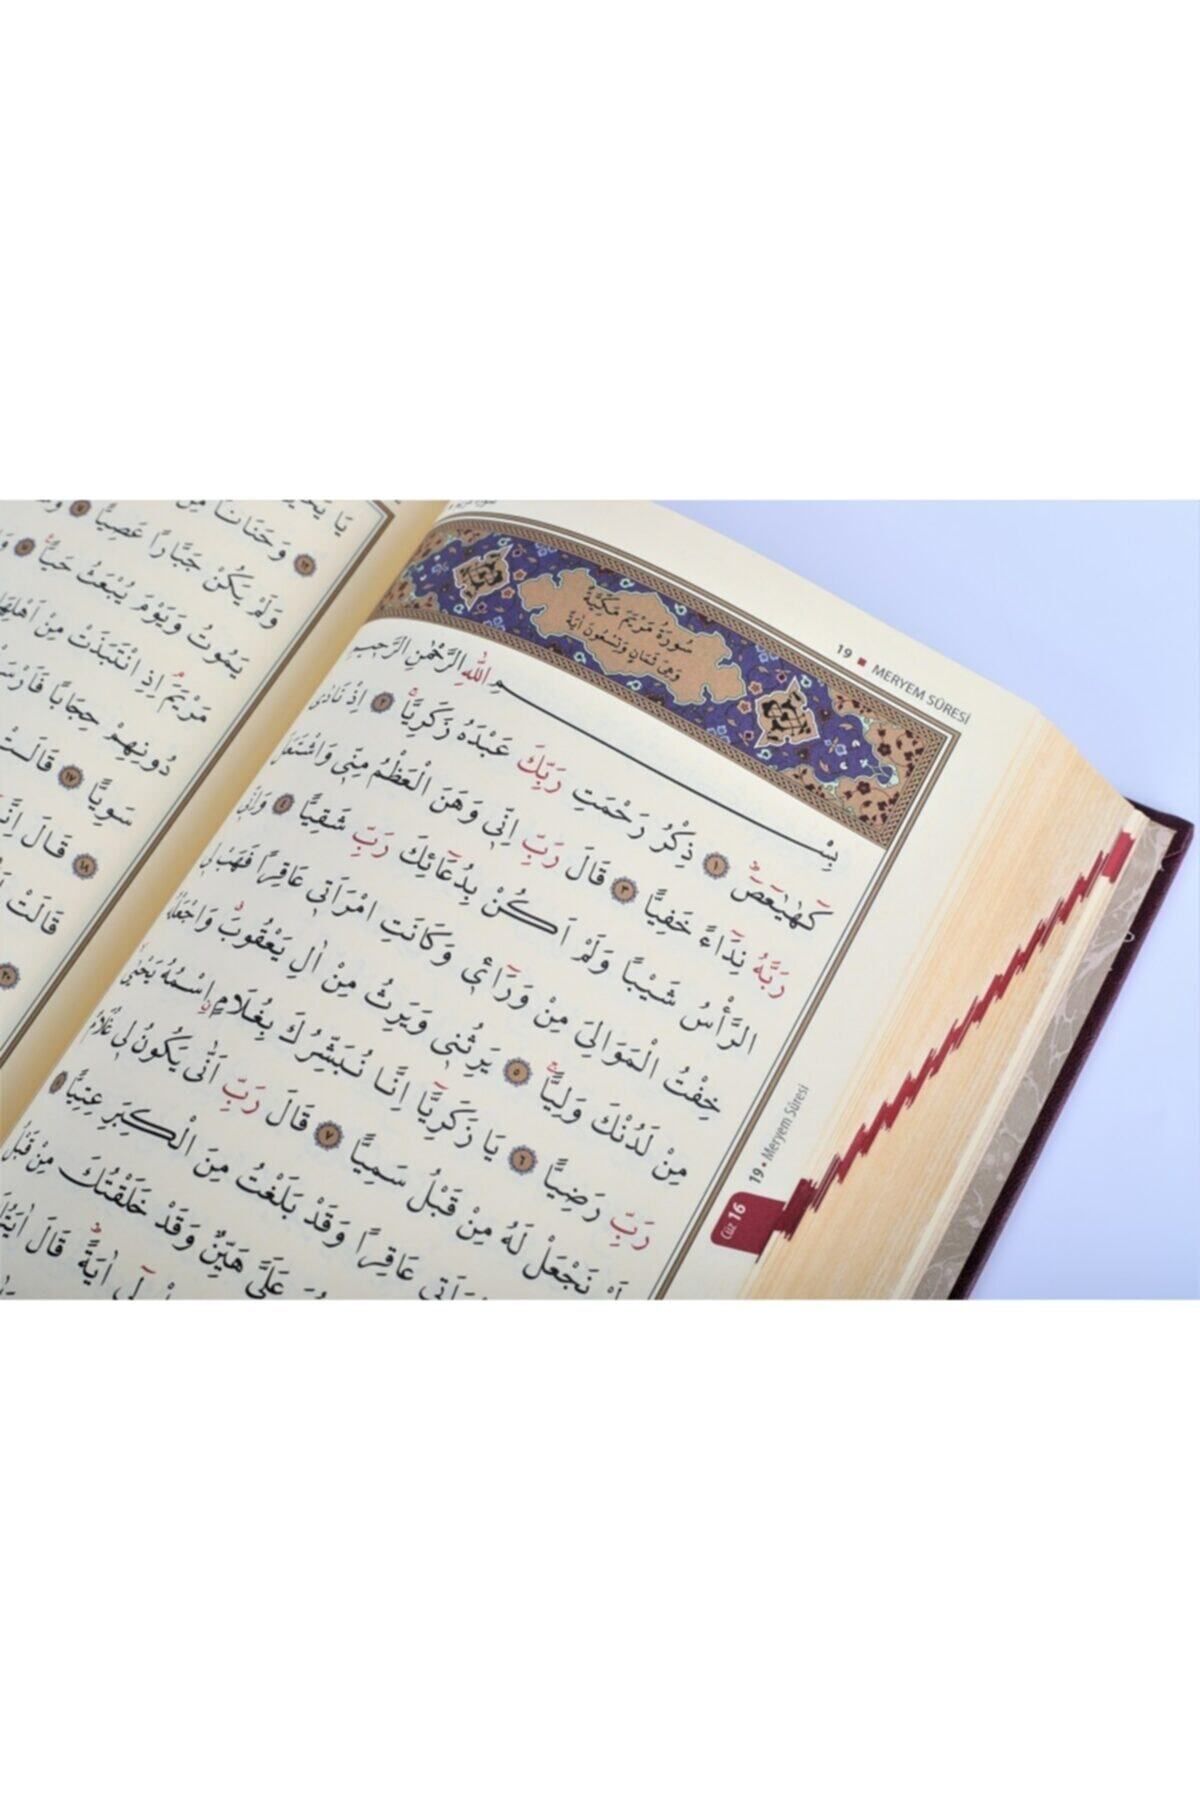 19 ▪ MERYEM SÛRESİ
سُورَةُ مَرْيَمَ مَكِّيَّةٌ
وَهِىَ ثَمَانٍ وَتِسْعُونَ اٰيَةً
بِسْمِ اللّٰهِ الرَّحْمٰنِ الرَّحِيمِ
كٓهٰيٰعٓصٓ ۚ ١ ذِكْرُ رَحْمَتِ رَبِّكَ عَبْدَهُ زَكَرِيَّاۚ ٢ اِذْ نَادٰى
رَبَّهُ نِدَٓاءً خَفِيًّا ٣ قَالَ رَبِّ اِنّ۪ى وَهَنَ الْعَظْمُ مِنّ۪ى وَاشْتَعَلَ
الرَّأْسُ شَيْبًا وَلَمْ اَكُنْ بِدُعَٓائِكَ رَبِّ شَقِيًّا ٤ وَاِنّ۪ى
خِفْتُ الْمَوَالِىَ مِنْ وَرَٓاء۪ى وَكَانَتِ امْرَاَت۪ى عَاقِرًا فَهَبْ ل۪ى
مِنْ لَدُنْكَ وَلِيًّاۙ ٥ يَرِثُن۪ى وَيَرِثُ مِنْ اٰلِ يَعْقُوبَۗ وَاجْعَلْهُ
رَبِّ رَضِيًّا ٦ يَا زَكَرِيَّٓا اِنَّا نُبَشِّرُكَ بِغُلَامٍ اِسْمُهُ يَحْيٰى
لَمْ نَجْعَلْ لَهُ مِنْ قَبْلُ سَمِيًّا ٧ قَالَ رَبِّ اَنّٰى يَكُونُ ل۪ى غُلَامٌ
عَاقِرًا وَقَدْ بَلَغْتُ مِنَ الْكِبَرِ عِتِيًّا ٨
عَلَىَّ هَيِّنٌ وَقَدْ خَلَقْتُكَ مِنْ قَبْلُ
اٰيَةً قَالَ اٰيَتُكَ
19 • Meryem Sûresi
Cüz 16
١٣ وَحَنَانًا مِنْ
وَلَمْ يَكُنْ جَبَّارًا عَصِيًّا
يَمُوتُ وَيَوْمَ يُبْعَثُ حَيًّا
مَرْيَمَ اِذِ انْتَبَذَتْ مِنْ اَهْلِهَا
دُونِهِمْ حِجَابًا
سَوِيًّا ١٧ قَالَتْ
١٨ قَالَ
قَالَتْ
٢٠